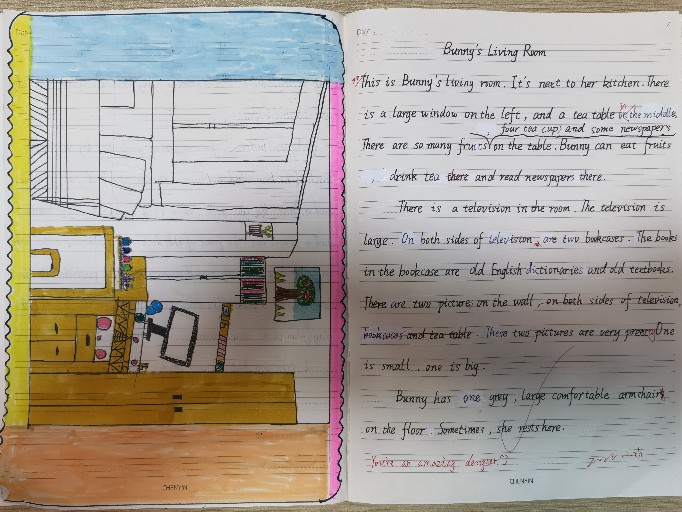 Bunny's Living Room
This is Bunny's living room. It's next to her kitchen. There
is a large window on the left, and a tea table in the middle.
four tea cups and some newspapers
There are so many fruits on the table. Bunny can eat fruits
, drink tea there and read newspapers there.
There is a television in the room. The television is
large. On both sides of television are two bookcases. The books
in the bookcase are old English dictionaries and old textbooks.
There are two pictures on the wall, on both sides of television,
bookcases and tea table. These two pictures are very preety One
is small, one is big.
Bunny has one grey, large comfortable armchairs
on the floor. Sometimes, she rests here.
You're an amazing designer.
CHENYIN
CHENYIN